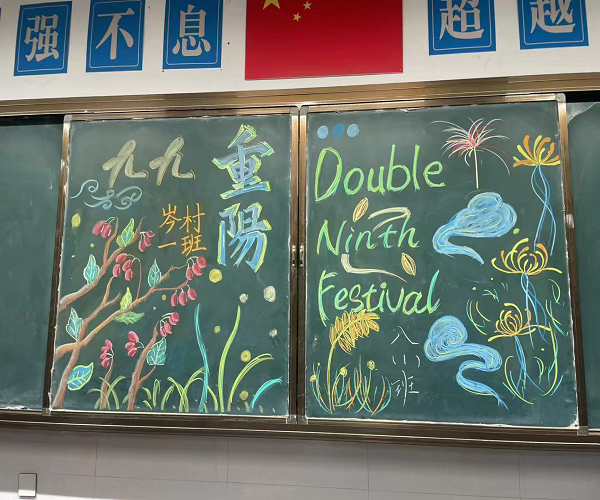 强不息
超越
九九
重阳
岑村
一班
Double
Ninth
Festival
八(1)班